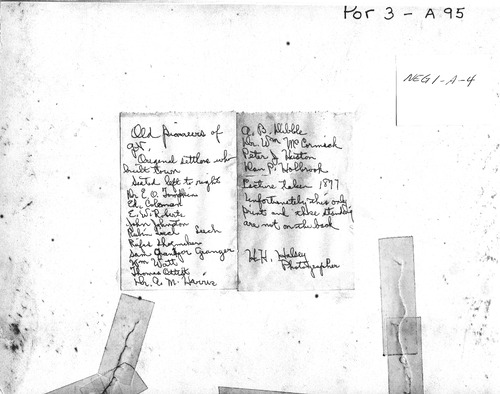 Por 3 - A 95
NEG1-A-4
Old Pioneers of
G.V.
Original settlers who
built town
listed left to right
Dr. E. O. Tompkins
Ed. Coleman
E. W. Roberts
John Johnston
Rubin Leech
Rufus Shoemaker
Sam Granger Granger
Wm Watt
Thomas
Dr. A. M. Harris
A. B. Dibble
Dr. Wm McCormack
Peter J. Huston
Alan P. Holbrook
Picture taken 1877
Unfortunately this only
print and those standing
are not on the back
H. H. Halsey
Photographer